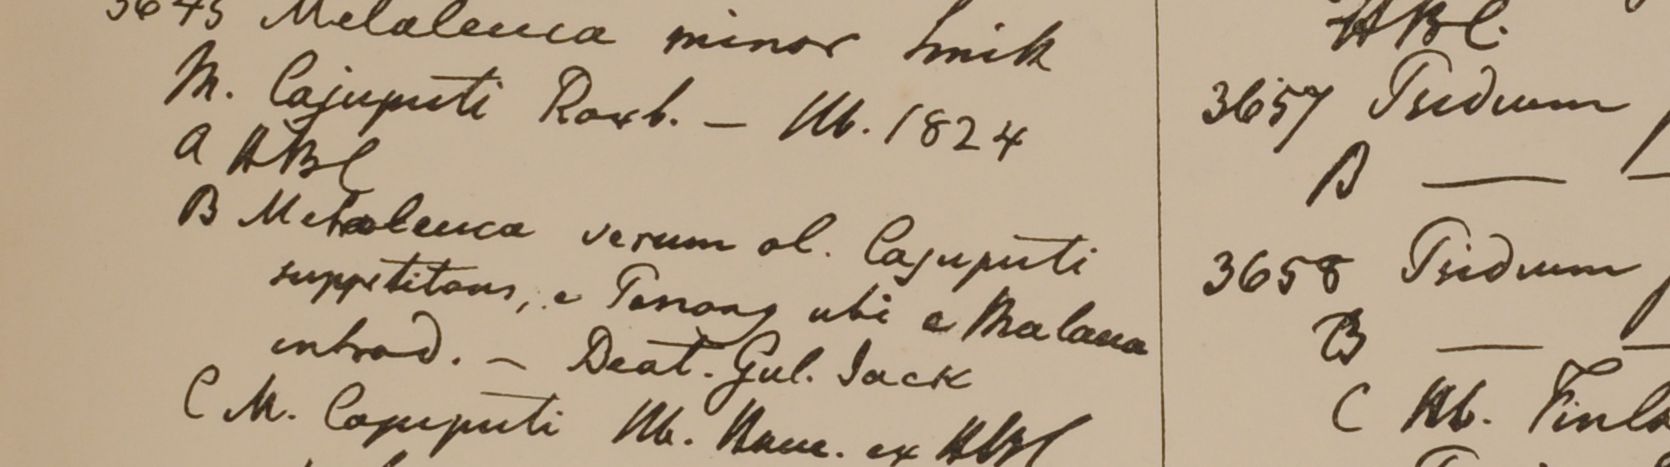 3645 Melaleuca minor Smith
M. Cajuputi Roxb. – Hb. 1824
A HBC
B Melaleuca verum ol. Cajuputi
suppetitans, e Penang ubi e Malacca
introd. – Deat. Gul. Jack
C M. Cajuputi Hb. Ham. ex HBC
HBC.
3657 Psidium
B —— —
3658 Psidium
B —— —
C Hb. Finla